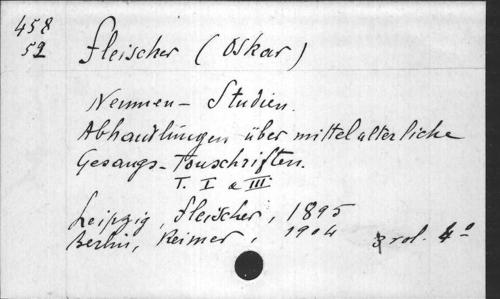 458
52
Fleischer (Oskar)
Neumen - Studien.
Abhandlungen über mittelalterliche
Gesangs - Tonschriften.
T. I a III
Leipzig, Fleischer, 1895
Berlin, Reimer, 1904
3 vol. 4°